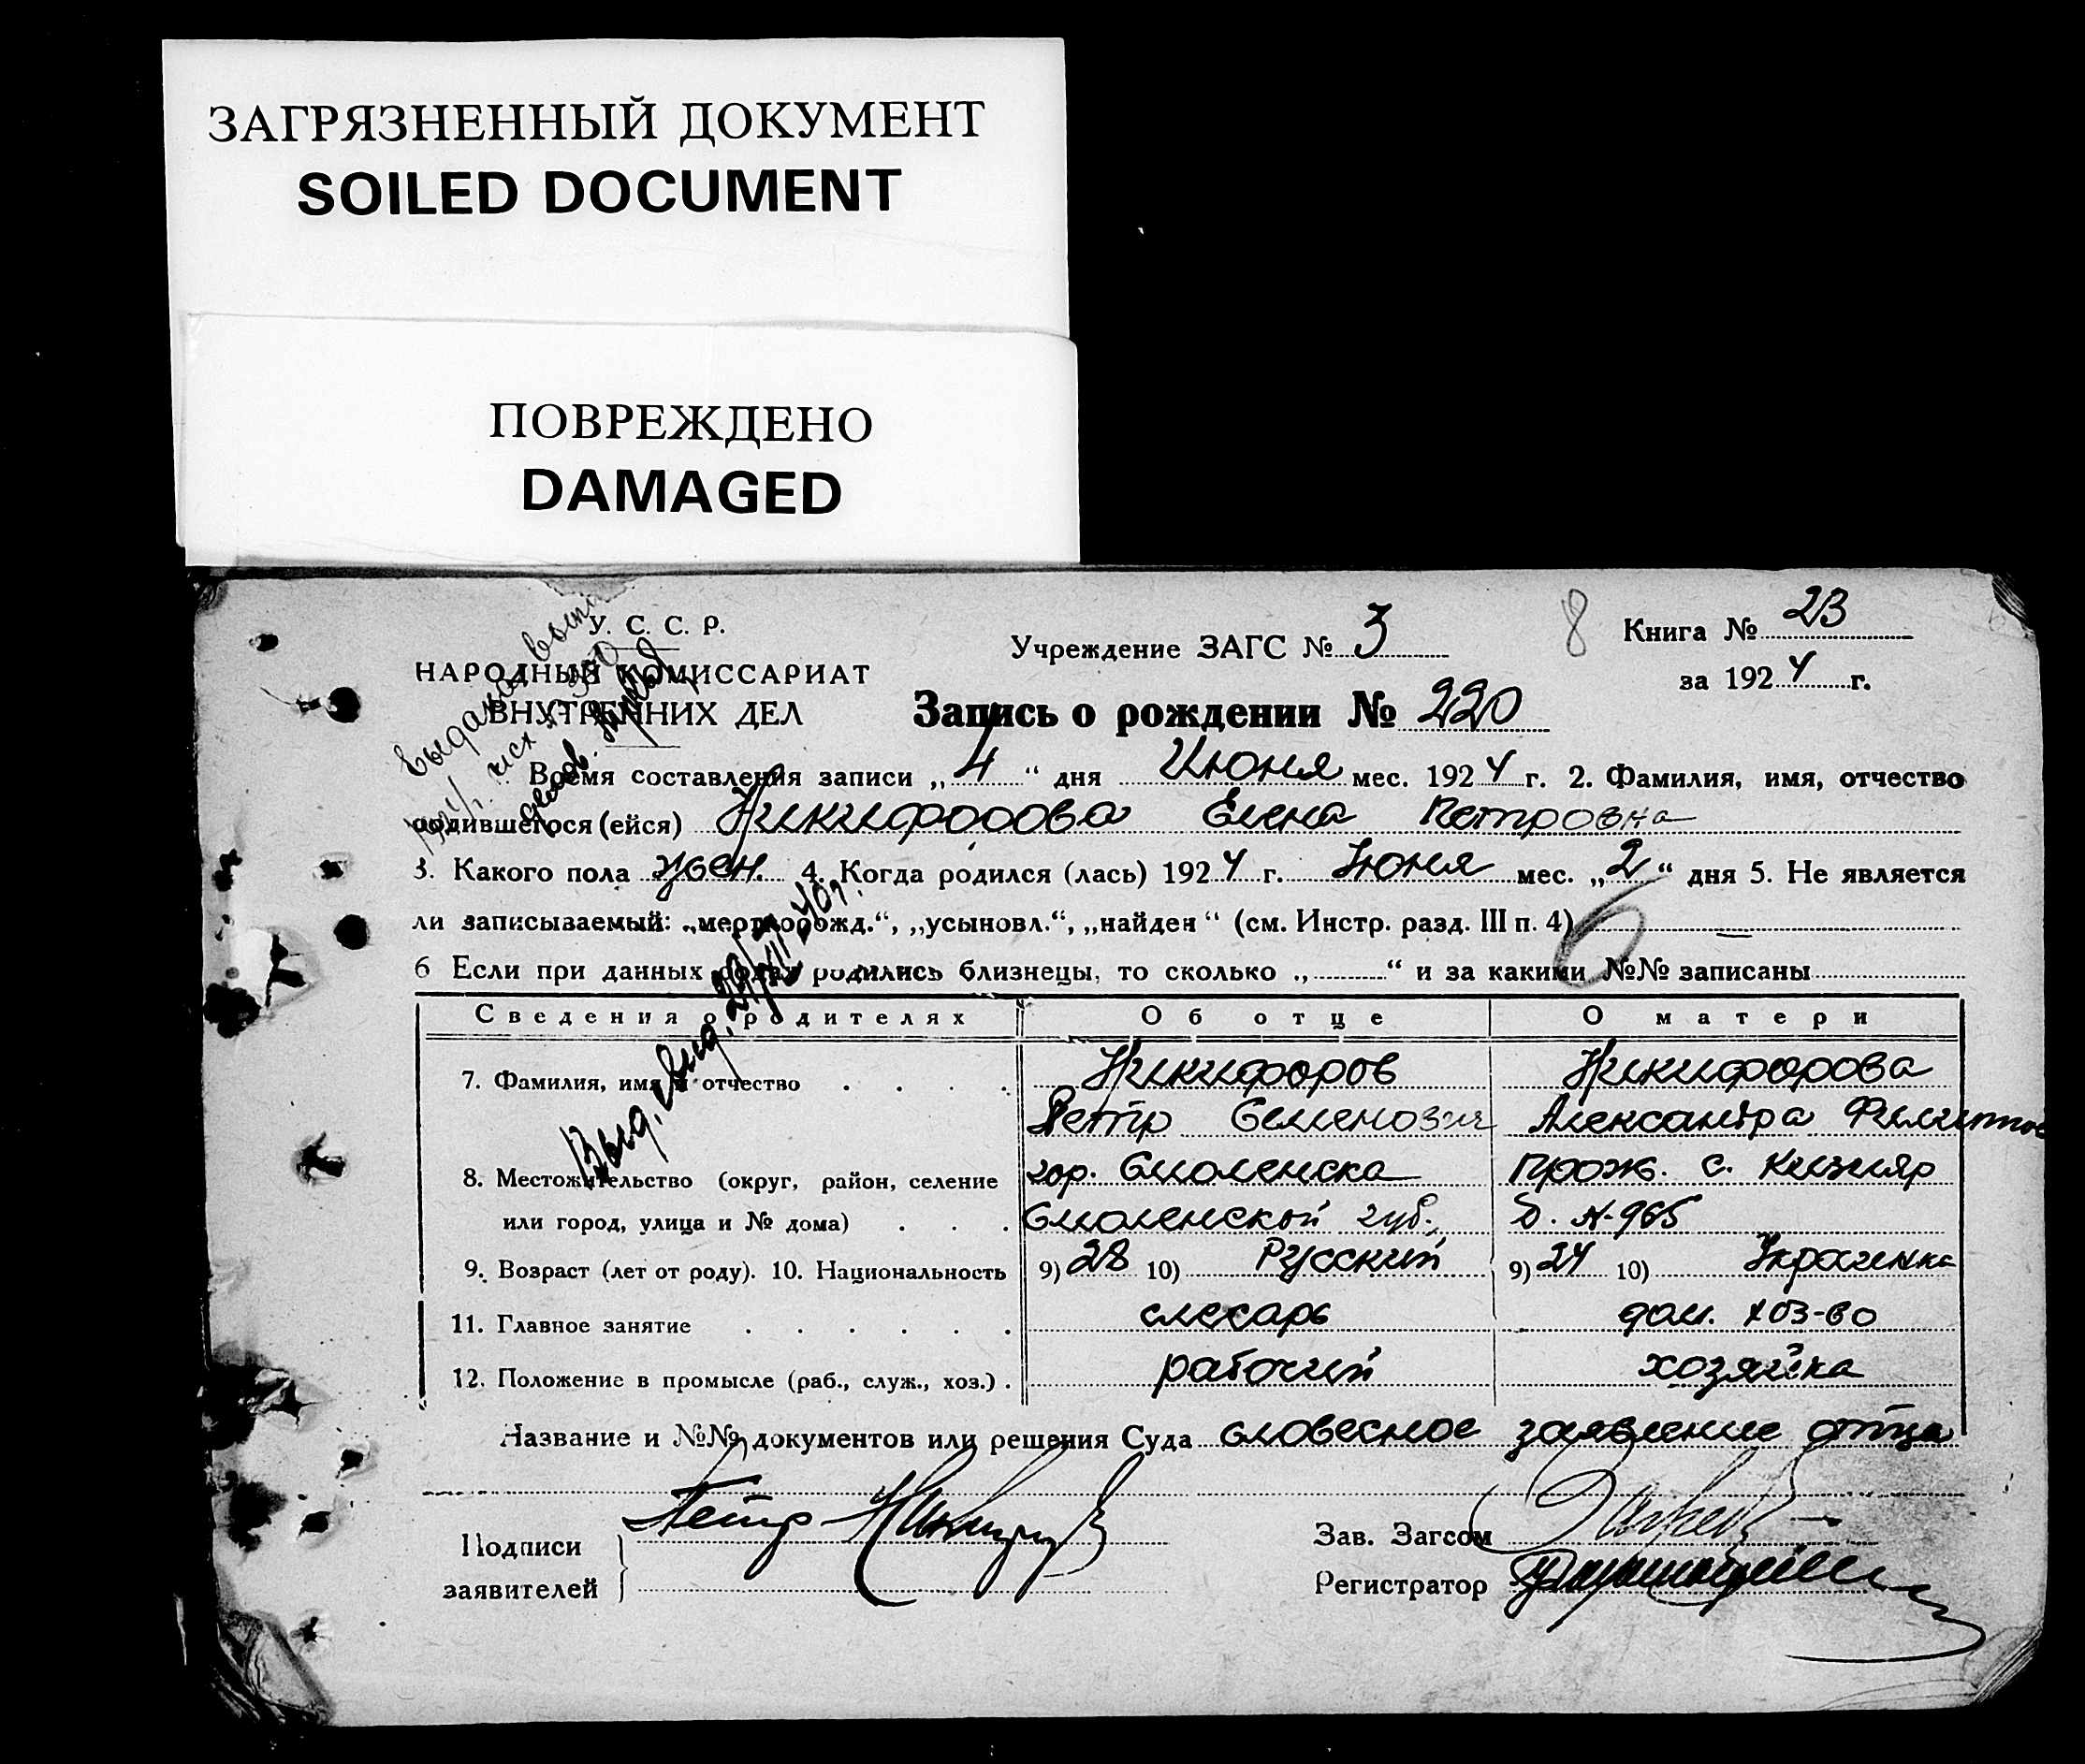 ЗАГРЯЗНЕННЫЙ ДОКУМЕНТ
SOILED DOCUMENT
ПОВРЕЖДЕНО
DAMAGED
У. С. С. Р.
НАРОДНЫЙ КОМИССАРИАТ
ВНУТРЕННИХ ДЕЛ
Учреждение ЗАГС № 3
8
Книга № 23
за 1924 г.
Запись о рождении № 220
Время составления записи „4“ дня Июня мес. 1924 г. 2. Фамилия, имя, отчество
родившегося (ейся) Никифорова Елена Петровна
3. Какого пола жен. 4. Когда родился (лась) 1924 г. Июня мес. „2“ дня 5. Не является
ли записываемый: „мертворожд.“, „усыновл.“, „найден“ (см. Инстр. разд. III п. 4) —
6 Если при данных родах родились близнецы, то сколько „ “ и за какими №№ записаны
Сведения о родителях Об отце О матери
7. Фамилия, имя и отчество . . . . Никифоров Никифорова
Петр Семенович Александра
8. Местожительство (округ, район, селение гор. Смоленска прож. с. Кизияр
или город, улица и № дома) . . . Смоленской губ. д. №965
9. Возраст (лет от роду). 10. Национальность 9) 28 10) Русский 9) 24 10) Украинка
11. Главное занятие . . . . . . слесарь дом. хоз-во
12. Положение в промысле (раб., служ., хоз.) . рабочий хозяйка
Название и №№ документов или решения Суда словесное заявление отца
Подписи
заявителей
Петр
Зав. Загсом
Регистратор